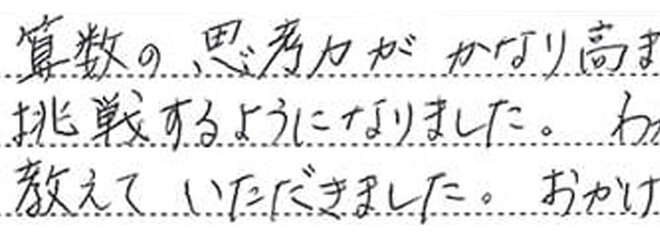 算数の思考力がかなり高ま
挑戦するようになりました。わか
教えていただきました。おかけ